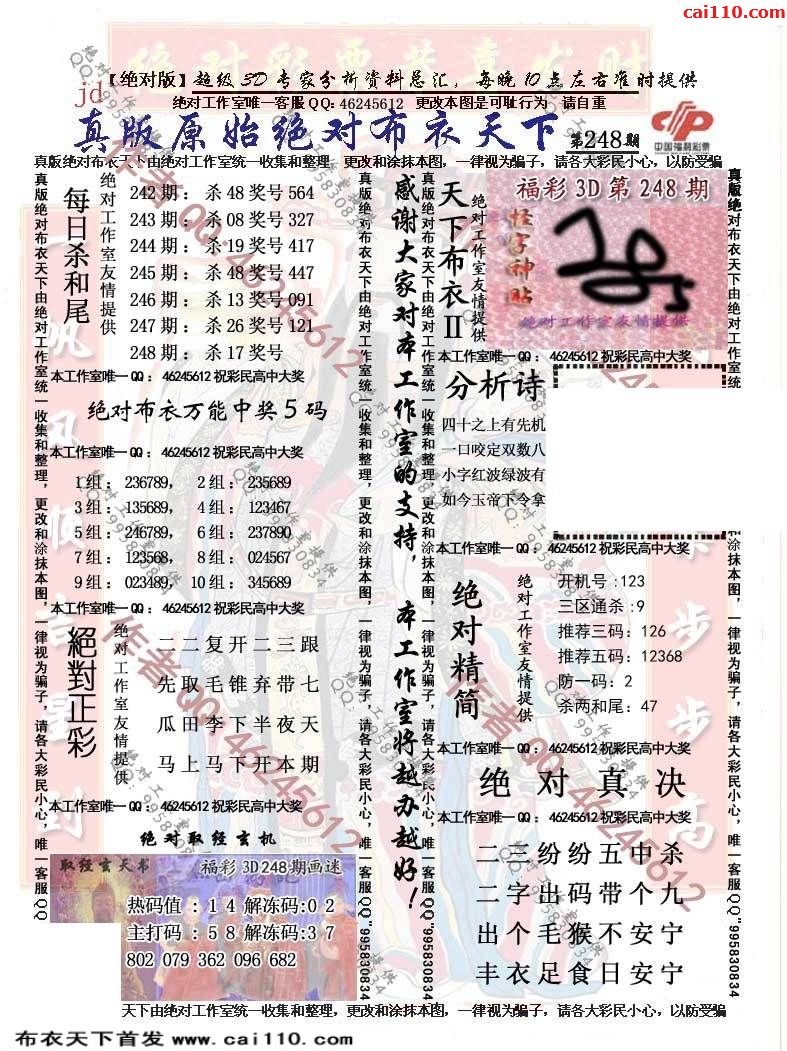 cai110.com
【绝对版】超级3D专家分析资料总汇，每晚10点左右准时提供
jd
绝对工作室唯一客服QQ:46245612 更改本图是可耻行为 请自重
真版原始绝对布衣天下 第248期
中国福利彩票
真版绝对布衣天下由绝对工作室统一收集和整理，更改和涂抹本图，一律视为骗子，请各大彩民小心，以防受骗
真版绝对布衣天下由绝对工作室统一收集和整理，更改和涂抹本图，一律视为骗子，请各大彩民小心，唯一客服QQ
每日杀和尾
绝对工作室友情提供
242期：杀48奖号564
243期：杀08奖号327
244期：杀19奖号417
245期：杀48奖号447
246期：杀13奖号091
247期：杀26奖号121
248期：杀17奖号
本工作室唯一QQ：46245612祝彩民高中大奖
绝对布衣万能中奖5码
本工作室唯一QQ：46245612祝彩民高中大奖
1组：236789， 2组：235689
3组：135689， 4组：123467
5组：246789， 6组：237890
7组：123568， 8组：024567
9组：023489， 10组：345689
本工作室唯一QQ：46245612祝彩民高中大奖
絕對正彩
绝对工作室友情提供
二二复开二三跟
先取毛锥弃带七
瓜田李下半夜天
马上马下开本期
本工作室唯一QQ：46245612祝彩民高中大奖
绝对取经玄机
取经玄天书 福彩3D248期画迷
热码值：14解冻码:02
主打码：58解冻码:37
802 079 362 096 682
真版绝对布衣天下由绝对工作室统一收集和整理，更改和涂抹本图，一律视为骗子，请各大彩民小心，唯一客服QQ"995830834
感谢大家对本工作室的支持，本工作室将越办越好！
真版绝对布衣天下由绝对工作室统一收集和整理，更改和涂抹本图，一律视为骗子，请各大彩民小心，唯一客服QQ"995830834
天下布衣II
绝对工作室友情提供
福彩3D第248期
怪字神帖
绝对工作室友情提供
本工作室唯一QQ：46245612祝彩民高中大奖
分析诗
四十之上有先机
一口咬定双数八
小字红波绿波有
如今玉帝下令拿
本工作室唯一QQ：46245612祝彩民高中大奖
绝对精简
绝对工作室友情提供
开机号:123
三区通杀:9
推荐三码：126
推荐五码：12368
防一码：2
杀两和尾：47
本工作室唯一QQ：46245612祝彩民高中大奖
绝对真决
本工作室唯一QQ：46245612祝彩民高中大奖
二三纷纷五中杀
二字出码带个九
出个毛猴不安宁
丰衣足食日安宁
真版绝对布衣天下由绝对工作室统一
和涂抹本图，一律视为骗子，请各大彩民小心，唯一客服QQ"995830834
天下由绝对工作室统一收集和整理，更改和涂抹本图，一律视为骗子，请各大彩民小心，以防受骗
作者QQ:46245612
布衣天下首发 www.cai110.com